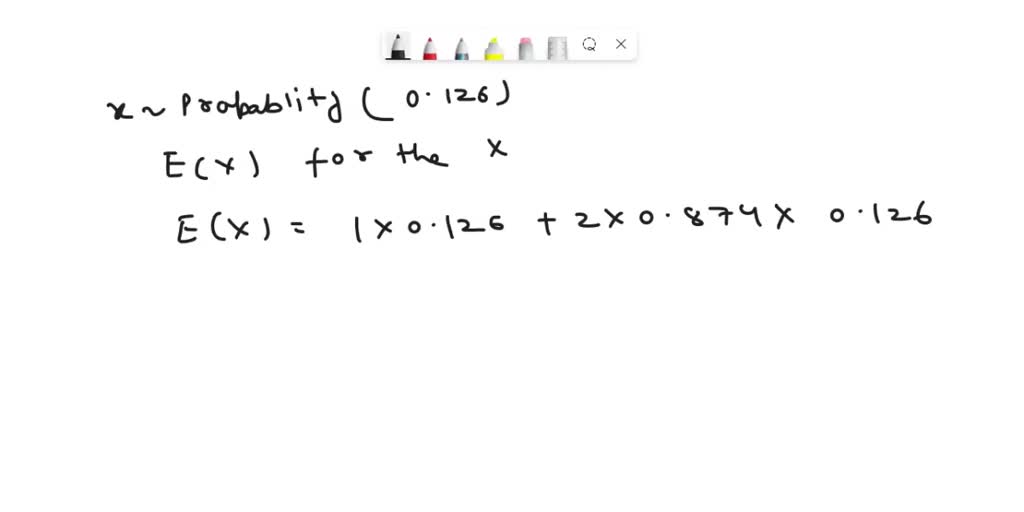 x ~ Probablity ( 0.126)
E(x) for the x
E(x) = 1 x 0.126 + 2 x 0.874 x 0.126